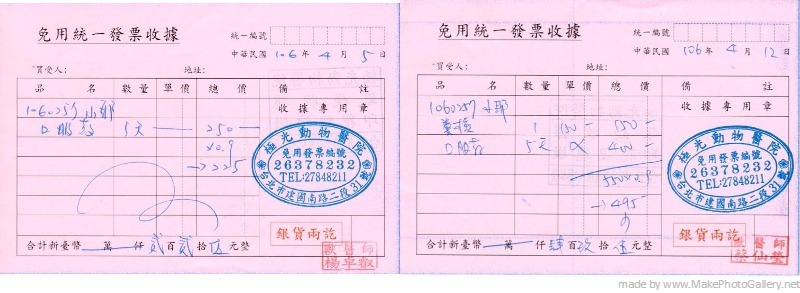 免用統一發票收據
統一編號
中華民國 106 年 4 月 5 日
買受人: 地址:
品 名 數量 單價 總價 備 註
收據專用章
1060257
5天 250
×0.9
→225
極光動物醫院
免用發票編號
26378232
TEL:27848211
台北市建國南路二段31號
銀貨兩訖
合計新臺幣 萬 仟 貳 百 貳 拾 伍 元整
獸醫師
免用統一發票收據
統一編號
中華民國 106 年 4 月 12 日
買受人: 地址:
品 名 數量 單價 總價 備 註
收據專用章
1060257
1 150 150
5天 400
550×0.9
→495
極光動物醫院
免用發票編號
26378232
TEL:27848211
台北市建國南路二段31號
銀貨兩訖
合計新臺幣 萬 仟 肆 百 玖 拾 伍 元整
獸醫師
made by www.MakePhotoGallery.net